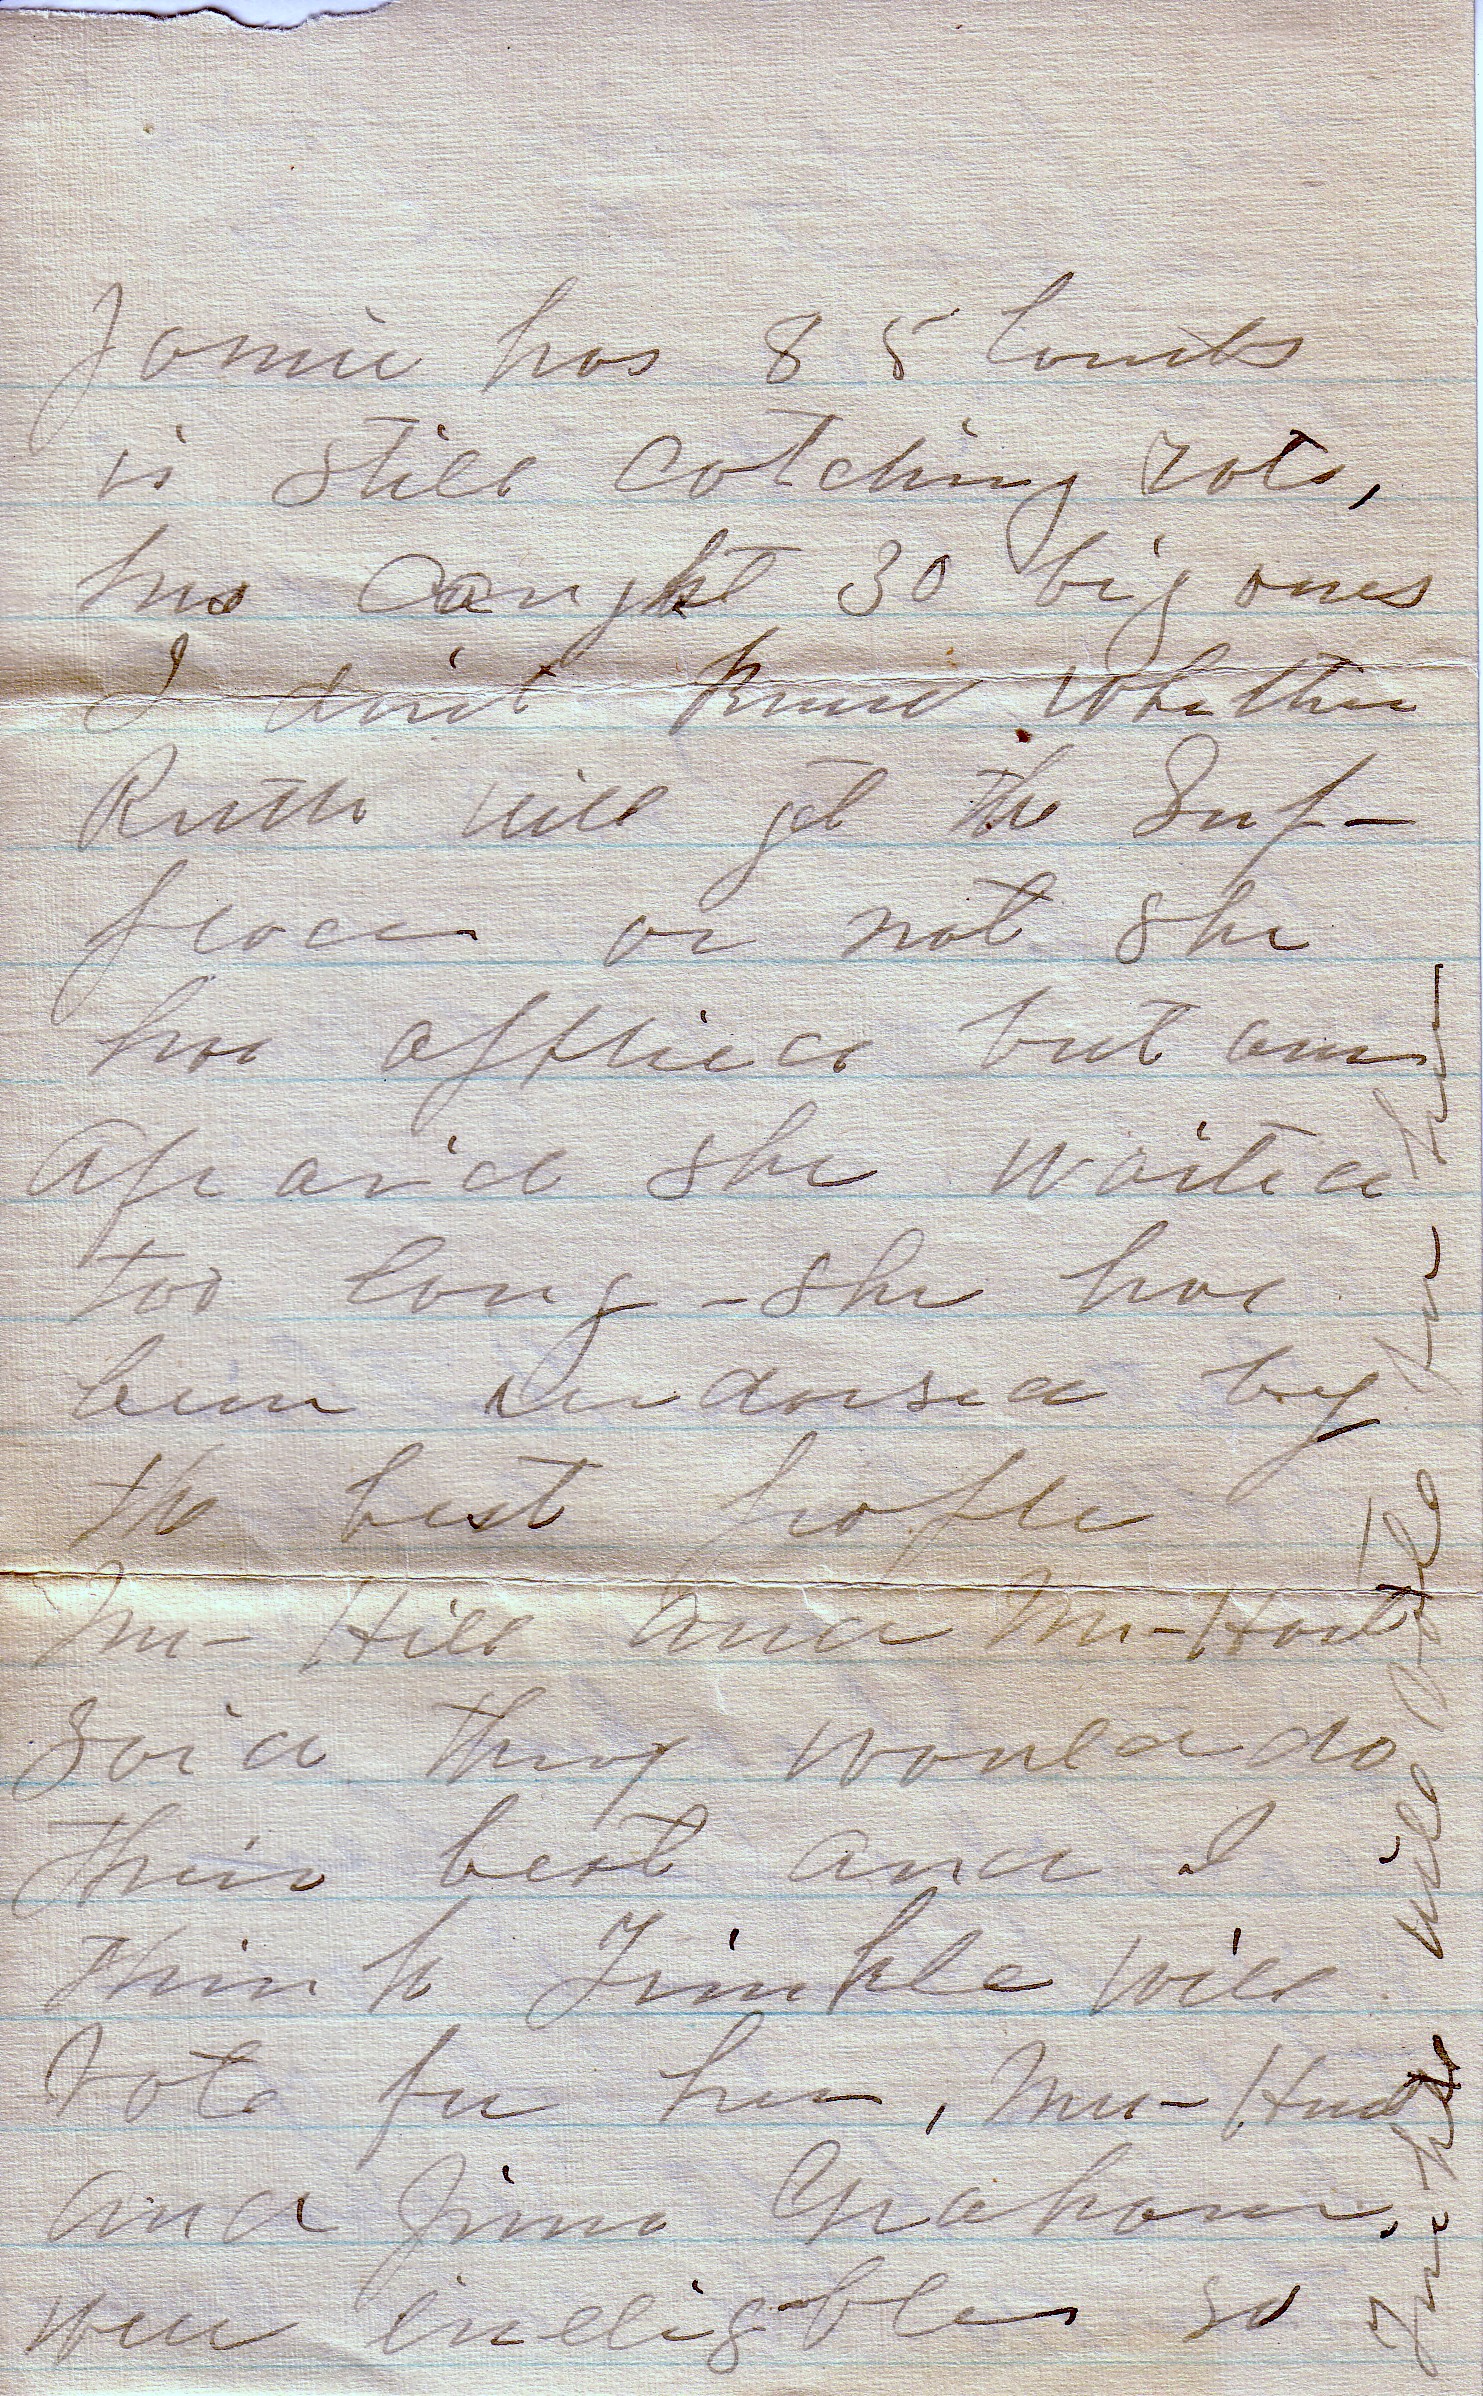 Jamie has 85 lambs
is still catching rats,
has caught 30 big ones
I don't know whether
Ruth will get the Sup-
place or not she
has applied but am
afraid she waited
too long - she has
been indorsed by
the best people
Mr - Hill and Mr - Hoit
said they would do
their best and I
think Trimble will
vote for her, Mr - Hud
and Jim Graham,
were ineligible so
I think will vote for her